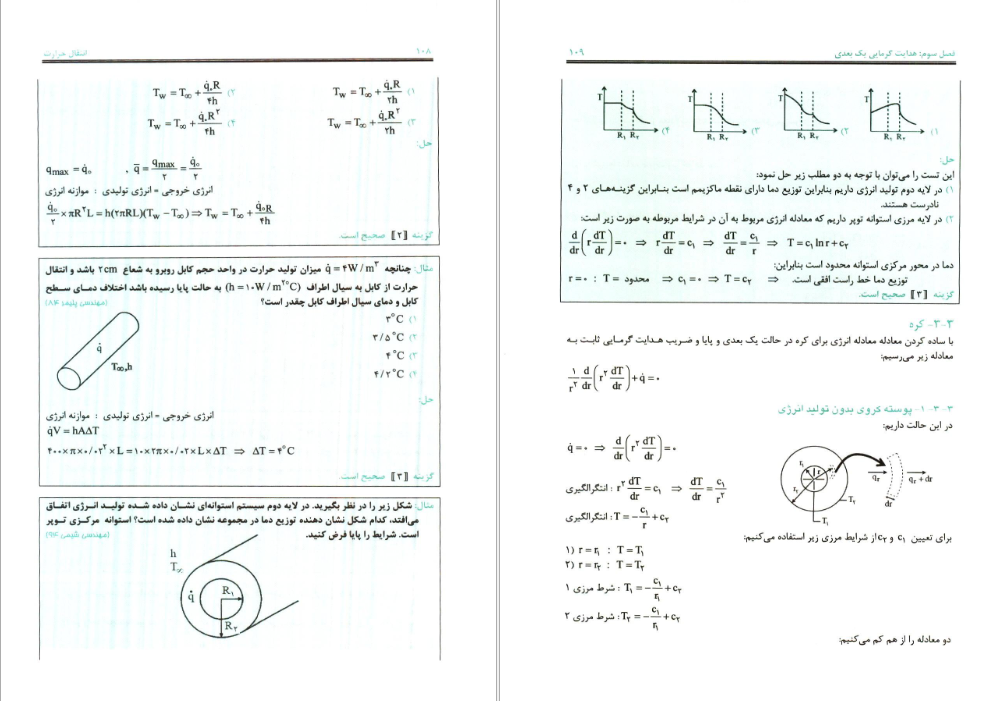 ۱۰۸
انتقال حرارت
۱) T_w = T_∞ + q̇.R / ۲h
۲) T_w = T_∞ + q̇.R / ۴h
۳) T_w = T_∞ + q̇.R^۲ / ۲h
۴) T_w = T_∞ + q̇.R^۲ / ۴h
حل:
q_max = q̇_o , q̄ = q_max / ۲ = q̇_o / ۲
انرژی خروجی = انرژی تولیدی : موازنه انرژی
q̇_o / ۲ × πR^۲L = h(۲πRL)(T_w − T_∞) ⇒ T_w = T_∞ + q̇_oR / ۴h
گزینه [۲] صحیح است.
مثال: چنانچه q̇ = ۴W / m^۳ میزان تولید حرارت در واحد حجم کابل روبرو به شعاع ۲cm باشد و انتقال
حرارت از کابل به سیال اطراف (h = ۱۰W / m^۲°C) به حالت پایا رسیده باشد اختلاف دمای سطح
کابل و دمای سیال اطراف کابل چقدر است؟ (مهندسی پلیمر ۸۴)
۱) ۳°C
۲) ۳/۵°C
۳) ۴°C
۴) ۴/۲°C
q̇
T_∞,h
حل:
انرژی خروجی = انرژی تولیدی : موازنه انرژی
q̇V = hAΔT
۴۰۰×π×۰/۰۲^۲×L = ۱۰×۲π×۰/۰۲×L×ΔT ⇒ ΔT = ۴°C
گزینه [۳] صحیح است.
مثال: شکل زیر را در نظر بگیرید. در لایه دوم سیستم استوانه‌ای نشان داده شده تولید انرژی اتفاق
می‌افتد، کدام شکل نشان دهنده توزیع دما در مجموعه نشان داده شده است؟ استوانه مرکزی توپر
است. شرایط را پایا فرض کنید. (مهندسی شیمی ۹۴)
h
T_∞
q̇
R_۱
R_۲
فصل سوم: هدایت گرمایی یک بعدی
۱۰۹
T R_۱ R_۲ ۱)
T R_۱ R_۲ ۲)
T R_۱ R_۲ ۳)
T R_۱ R_۲ ۴)
حل:
این تست را می‌توان با توجه به دو مطلب زیر حل نمود:
۱) در لایه دوم تولید انرژی داریم بنابراین توزیع دما دارای نقطه ماکزیمم است بنابراین گزینه‌های ۲ و ۴
نادرست هستند.
۲) در لایه مرزی استوانه توپر داریم که معادله انرژی مربوط به آن در شرایط مربوطه به صورت زیر است:
d/dr (r dT/dr) = ۰ ⇒ r dT/dr = c_۱ ⇒ dT/dr = c_۱/r ⇒ T = c_۱ ln r + c_۲
دما در محور مرکزی استوانه محدود است بنابراین:
r = ۰ : T = محدود ⇒ c_۱ = ۰ ⇒ T = c_۲ ⇒ توزیع دما خط راست افقی است.
گزینه [۳] صحیح است.
۳-۳- کره
با ساده کردن معادله معادله انرژی برای کره در حالت یک بعدی و پایا و ضریب هدایت گرمایی ثابت به
معادله زیر می‌رسیم:
۱/r^۲ d/dr (r^۲ dT/dr) + q̇ = ۰
۳-۳-۱- پوسته کروی بدون تولید انرژی
در این حالت داریم:
q̇ = ۰ ⇒ d/dr (r^۲ dT/dr) = ۰
انتگرالگیری : r^۲ dT/dr = c_۱ ⇒ dT/dr = c_۱/r^۲
انتگرالگیری : T = −c_۱/r + c_۲
r_۱
r
r_۲
T_۲
T_۱
q_r
dr
q_r+dr
برای تعیین c_۱ و c_۲ از شرایط مرزی زیر استفاده می‌کنیم:
۱) r = r_۱ : T = T_۱
۲) r = r_۲ : T = T_۲
شرط مرزی ۱ : T_۱ = −c_۱/r_۱ + c_۲
شرط مرزی ۲ : T_۲ = −c_۱/r_۱ + c_۲
دو معادله را از هم کم می‌کنیم: